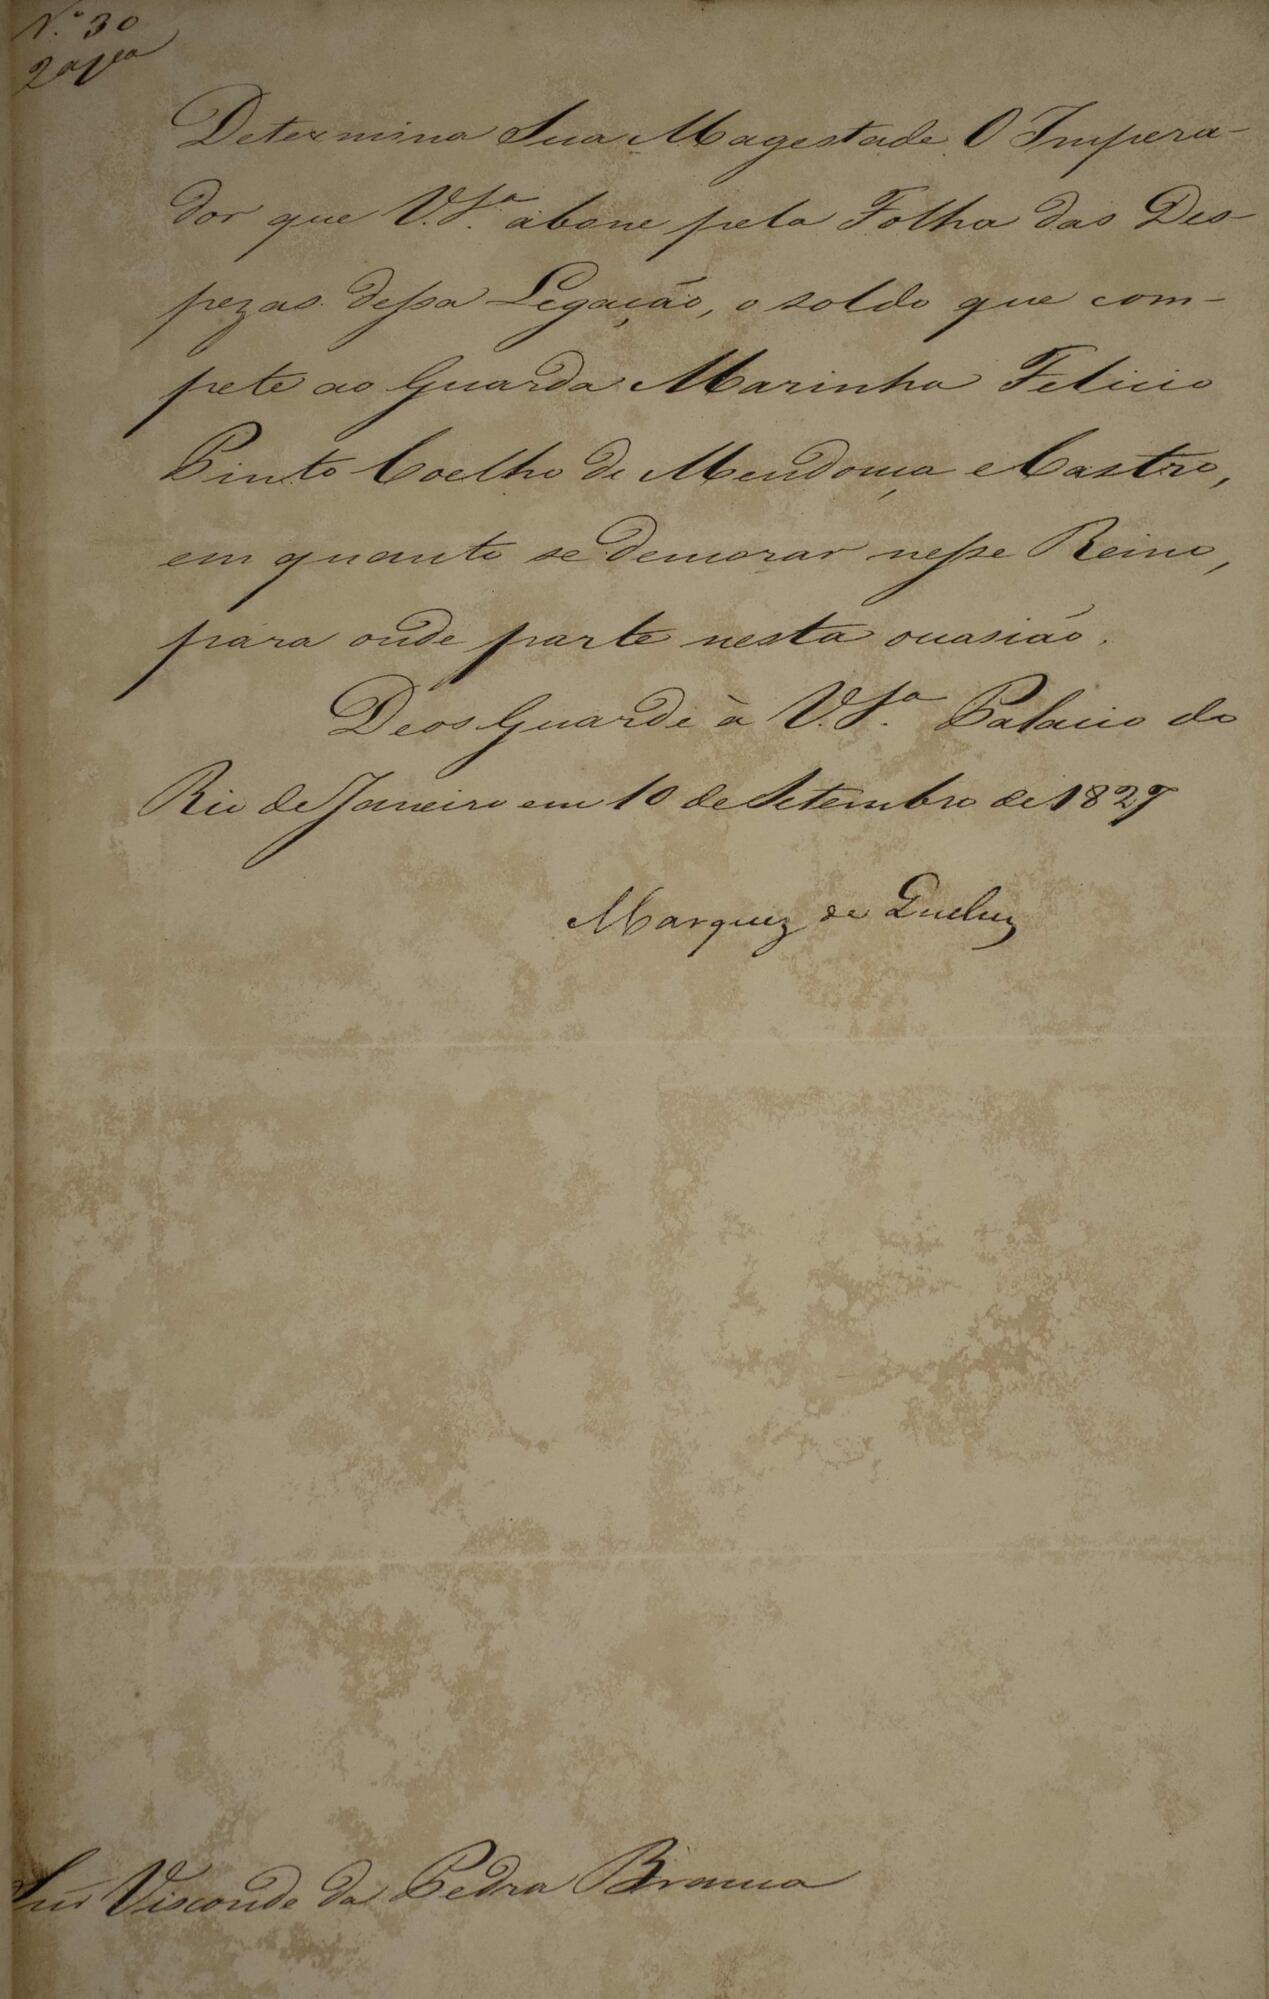 N.º 30
2ª via
Determina Sua Magestade O Impera-
dor que V.S.ª abone pela Folha das Des-
pezas dessa Legação, o soldo que com-
pete ao Guarda Marinha Felicio
Pinto Coelho de Mendonça e Castro,
em quanto se demorar nesse Reino,
para onde parte nesta occasião.
Deos Guarde à V.S.ª Palacio do
Rio de Janeiro em 10 de Setembro de 1827
Marquez de Queluz
Snr Visconde da Pedra Branca